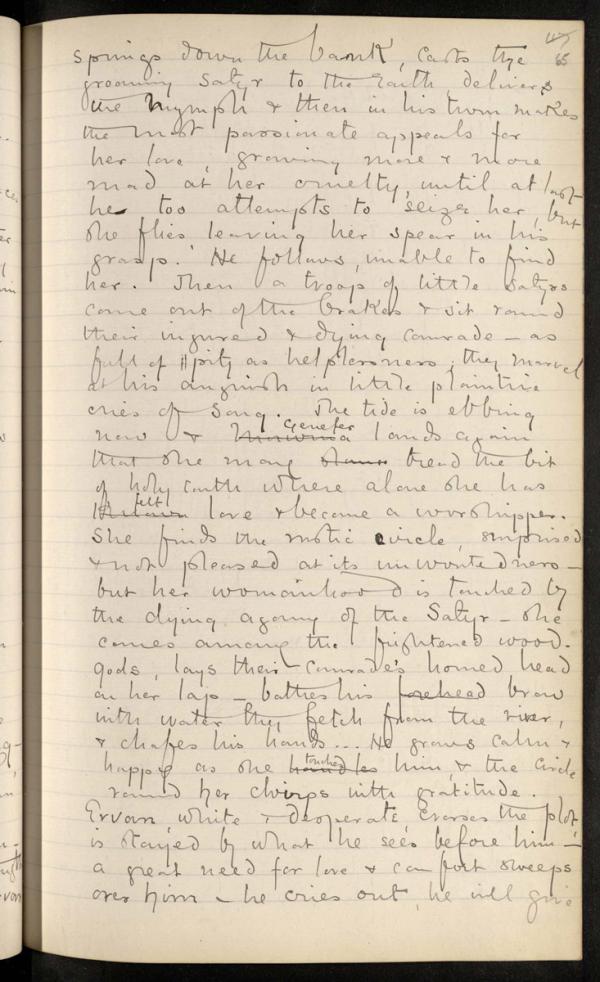 springs down the bank, casts the 65
groaning Satyr to the Earth, delivers
the Nymph & then in his turn makes
the most passionate appeals for
her love, growing more & more
mad at her cruelty, until at last
he too attempts to seize her, but
she flies leaving her spear in his
grasp. He follows, unable to find
her. Then a troop of little Satyrs
come out of the brakes & sit round
their injured & dying comrade – as
full of pity as helplessness; they marvel
at his anguish in little plaintive
cries of Song. The tide is ebbing
now & Genefer lands again
that she may tread the bit
of holy earth where alone she has
felt love & become a worshipper.
She finds the rustic circle, surprised
& not pleased at its unwontedness –
but her womanhood is touched by
the dying agony of the Satyr – she
comes among the frightened wood-
gods, lays their comrade's horned head
on her lap – bathes his forehead brow
with water they fetch from the river,
& chafes his hands... He grows calm &
happy as she handles touches him, & the circle
round her chirps with gratitude.
Ervan, white & desperate, crosses the plot,
is stayed by what he sees before him –
a great need for love & comfort sweeps
over him – he cries out, he will give